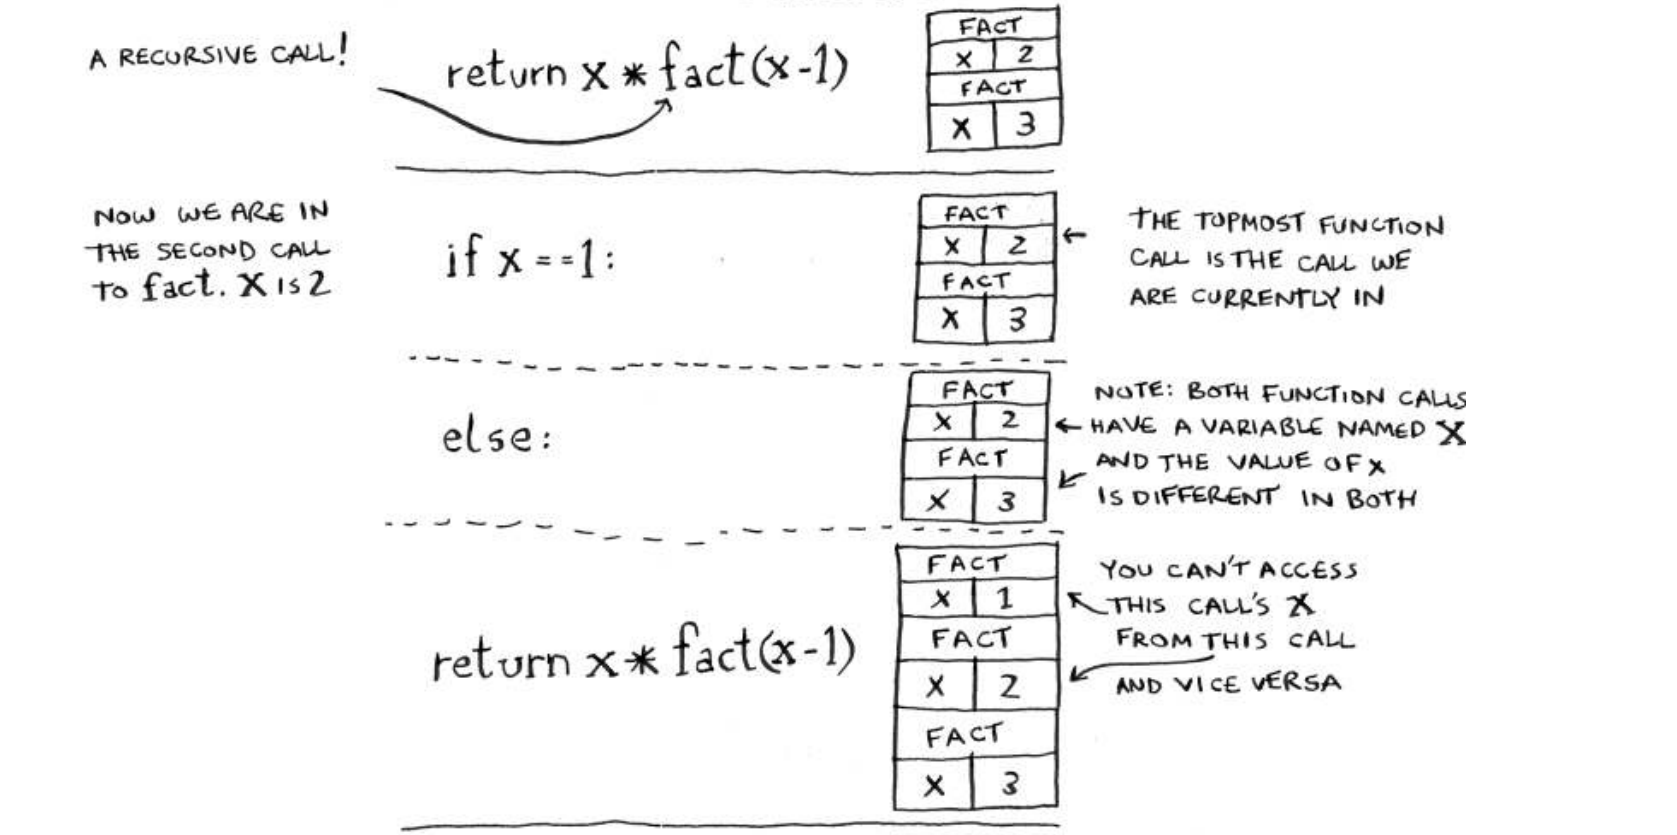 A RECURSIVE CALL!
return x * fact(x-1)
FACT
X 2
FACT
X 3
NOW WE ARE IN
THE SECOND CALL
TO fact. X IS 2
if x == 1:
FACT
X 2
FACT
X 3
← THE TOPMOST FUNCTION
CALL IS THE CALL WE
ARE CURRENTLY IN
else:
FACT
X 2
FACT
X 3
NOTE: BOTH FUNCTION CALLS
HAVE A VARIABLE NAMED X
AND THE VALUE OF X
IS DIFFERENT IN BOTH
return x * fact(x-1)
FACT
X 1
FACT
X 2
FACT
X 3
YOU CAN'T ACCESS
THIS CALL'S X
FROM THIS CALL
AND VICE VERSA